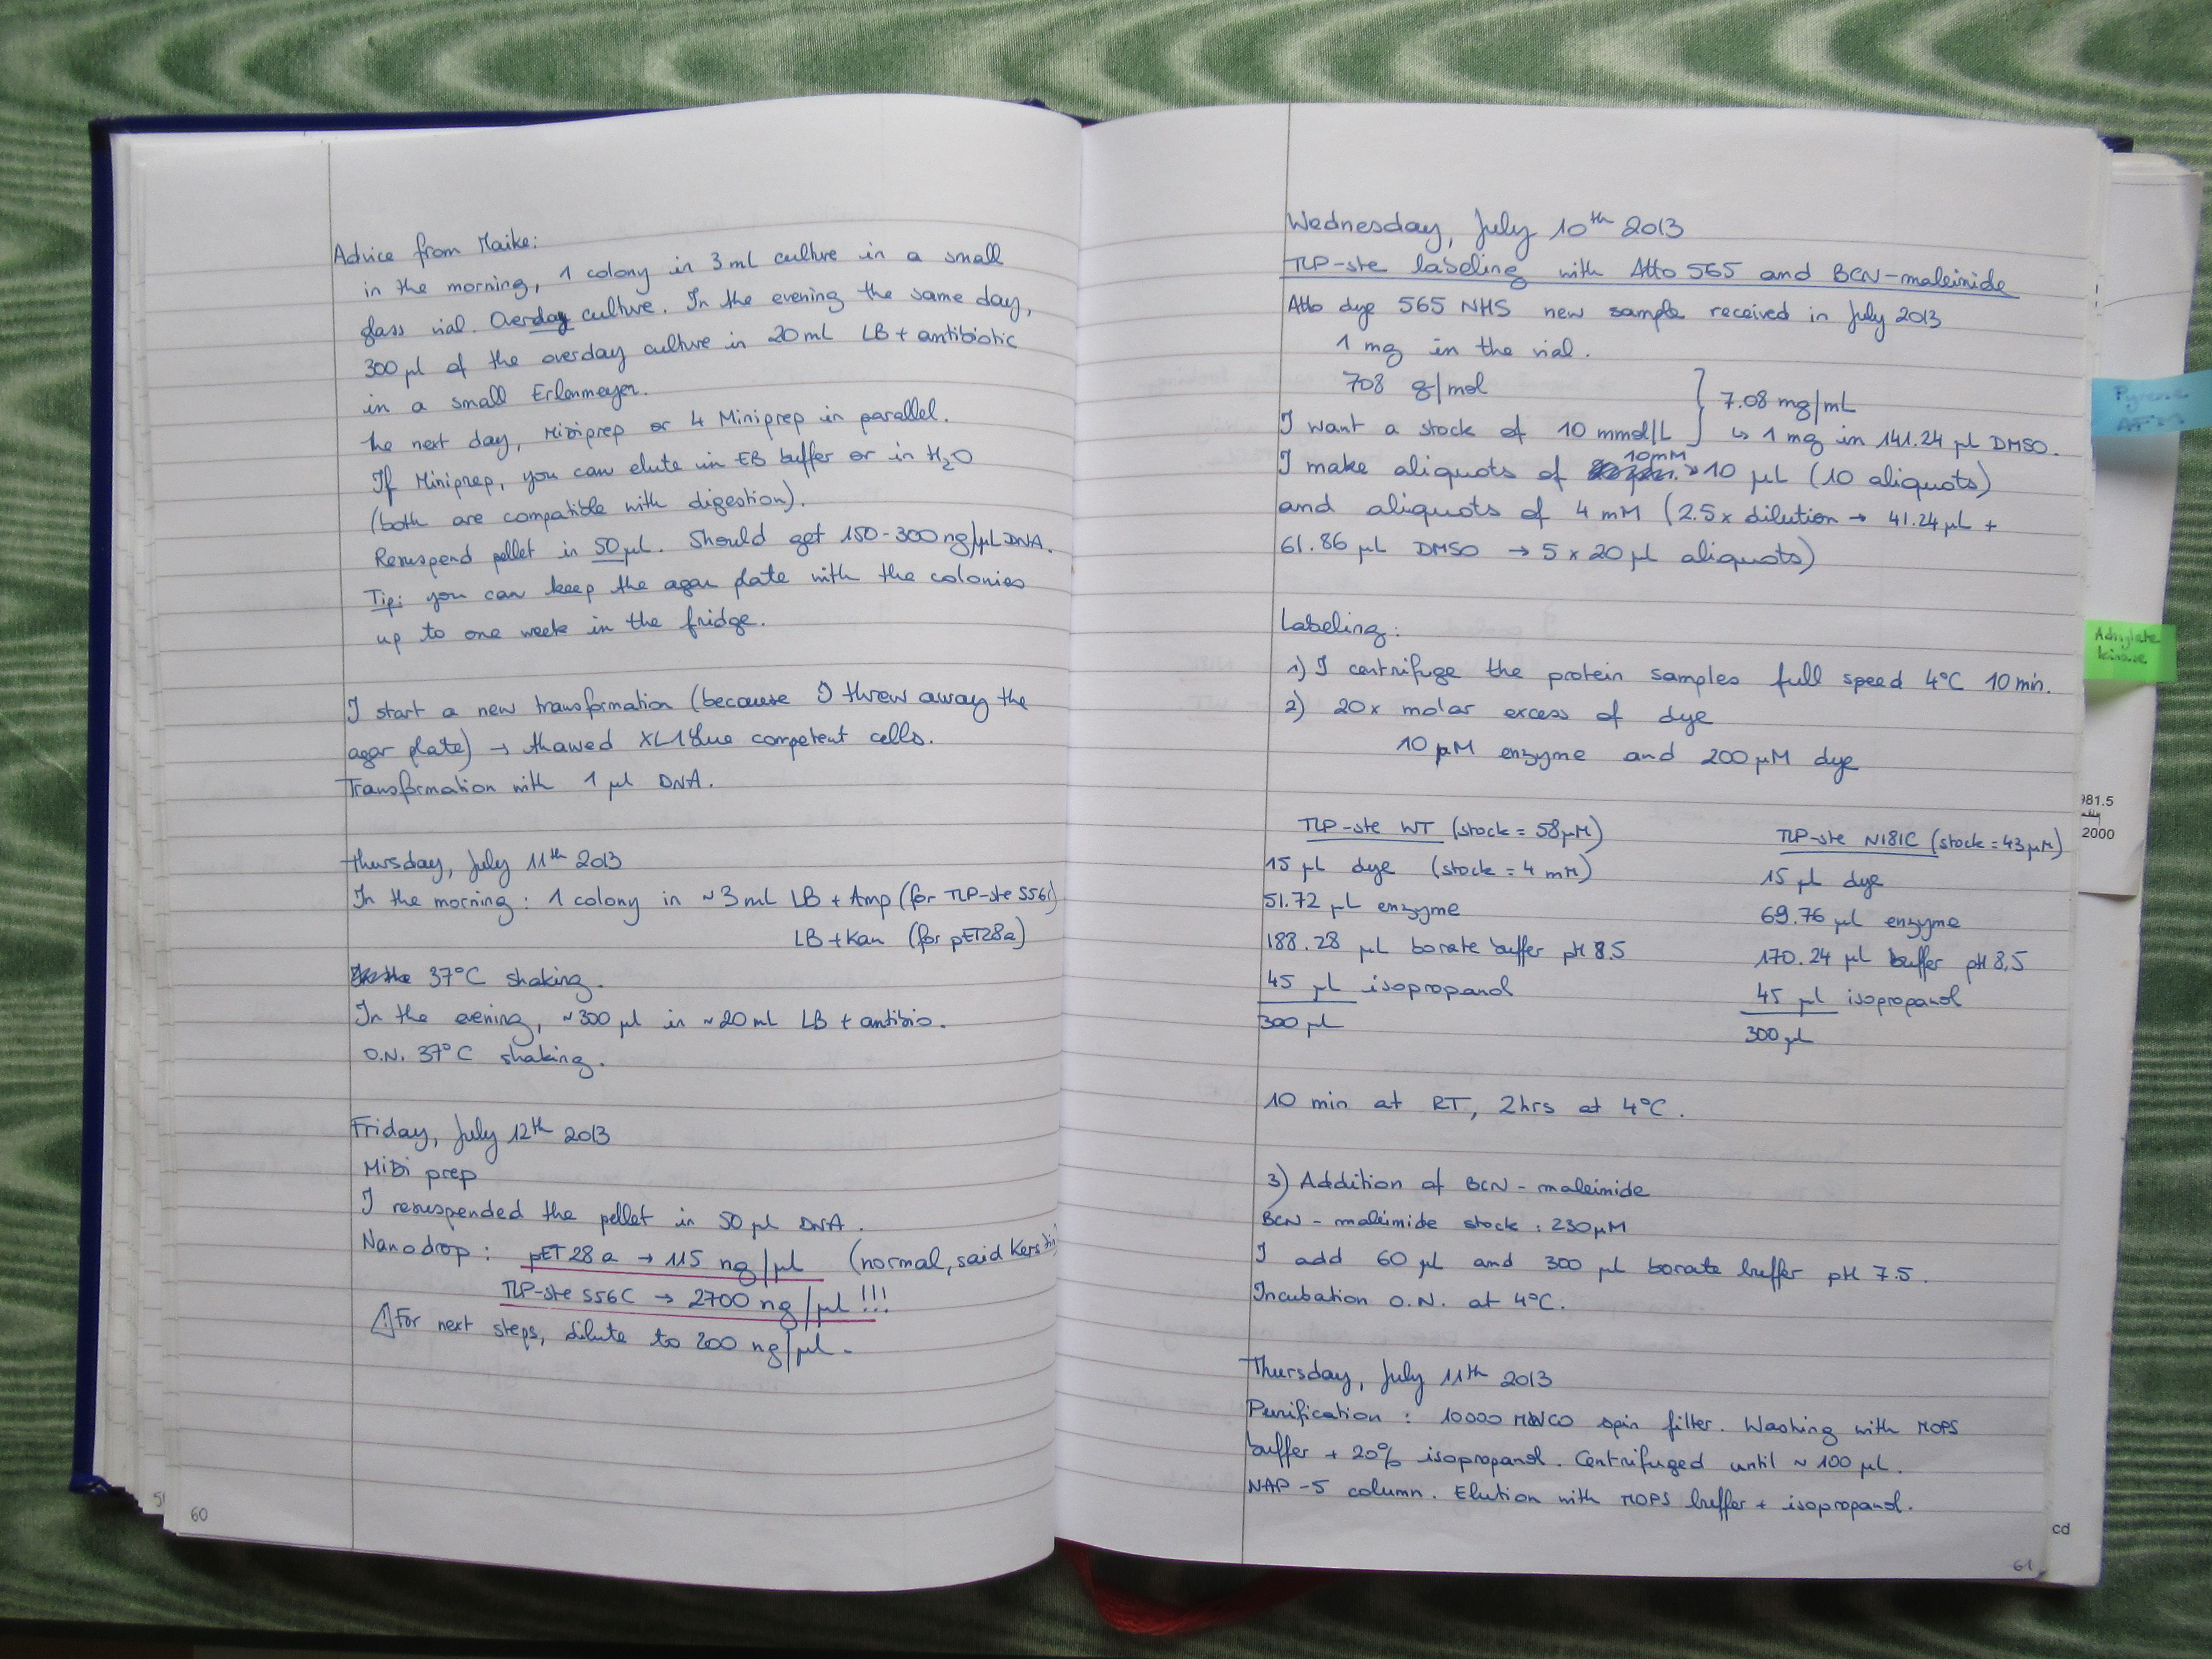 Advice from Maike:
in the morning, 1 colony in 3 mL culture in a small
glass vial. Overday culture. In the evening the same day,
300 µl of the overday culture in 20 mL LB + antibiotic
in a small Erlenmeyer.
the next day, Midiprep or 4 Miniprep in parallel.
If Miniprep, you can elute in EB buffer or in H2O
(both are compatible with digestion).
Resuspend pellet in 50 µl. Should get 150-300 ng/µL DNA.
Tip: you can keep the agar plate with the colonies
up to one week in the fridge.
I start a new transformation (because I threw away the
agar plate) → thawed XL1Blue competent cells.
Transformation with 1 µl DNA.
Thursday, July 11th 2013
In the morning: 1 colony in ~3 mL LB + Amp (for TLP-ste S56C)
LB + Kan (for pET28a)
37°C shaking.
In the evening, ~300 µl in ~20 mL LB + antibio.
O.N. 37°C shaking.
Friday, July 12th 2013
MiDi prep
I resuspended the pellet in 50 µl DNA.
Nanodrop: pET28a → 115 ng/µl (normal, said Kerstin)
TLP-ste S56C → 2700 ng/µl !!!
⚠ For next steps, dilute to 200 ng/µl.
60
Wednesday, July 10th 2013
TLP-ste labeling with Atto 565 and BCN-maleimide
Atto dye 565 NHS new sample received in July 2013
1 mg in the vial.
708 g/mol
7.08 mg/mL
I want a stock of 10 mmol/L ↳ 1 mg in 141.24 µl DMSO.
I make aliquots of 10mM → 10 µL (10 aliquots)
and aliquots of 4 mM (2.5x dilution → 41.24 µL +
61.86 µL DMSO → 5 x 20 µl aliquots)
Labeling:
1) I centrifuge the protein samples full speed 4°C 10 min.
2) 20x molar excess of dye
10 µM enzyme and 200 µM dye
TLP-ste WT (stock = 58µM)
15 µl dye (stock = 4 mM)
51.72 µL enzyme
188.28 µL borate buffer pH 8.5
45 µl isopropanol
300 µl
TLP-ste N181C (stock = 43µM)
15 µl dye
69.76 µl enzyme
170.24 µl buffer pH 8,5
45 µl isopropanol
300 µl
10 min at RT, 2hrs at 4°C.
3) Addition of BCN-maleimide
BCN-maleimide stock: 230µM
I add 60 µl and 300 µl borate buffer pH 7.5.
Incubation O.N. at 4°C.
Thursday, July 11th 2013
Purification: 10000 MWCO spin filter. Washing with MOPS
buffer + 20% isopropanol. Centrifuged until ~ 100 µL.
NAP-5 column. Elution with MOPS buffer + isopropanol.
61
Pyrene
Adenylate
kinase
981.5
2000
cd